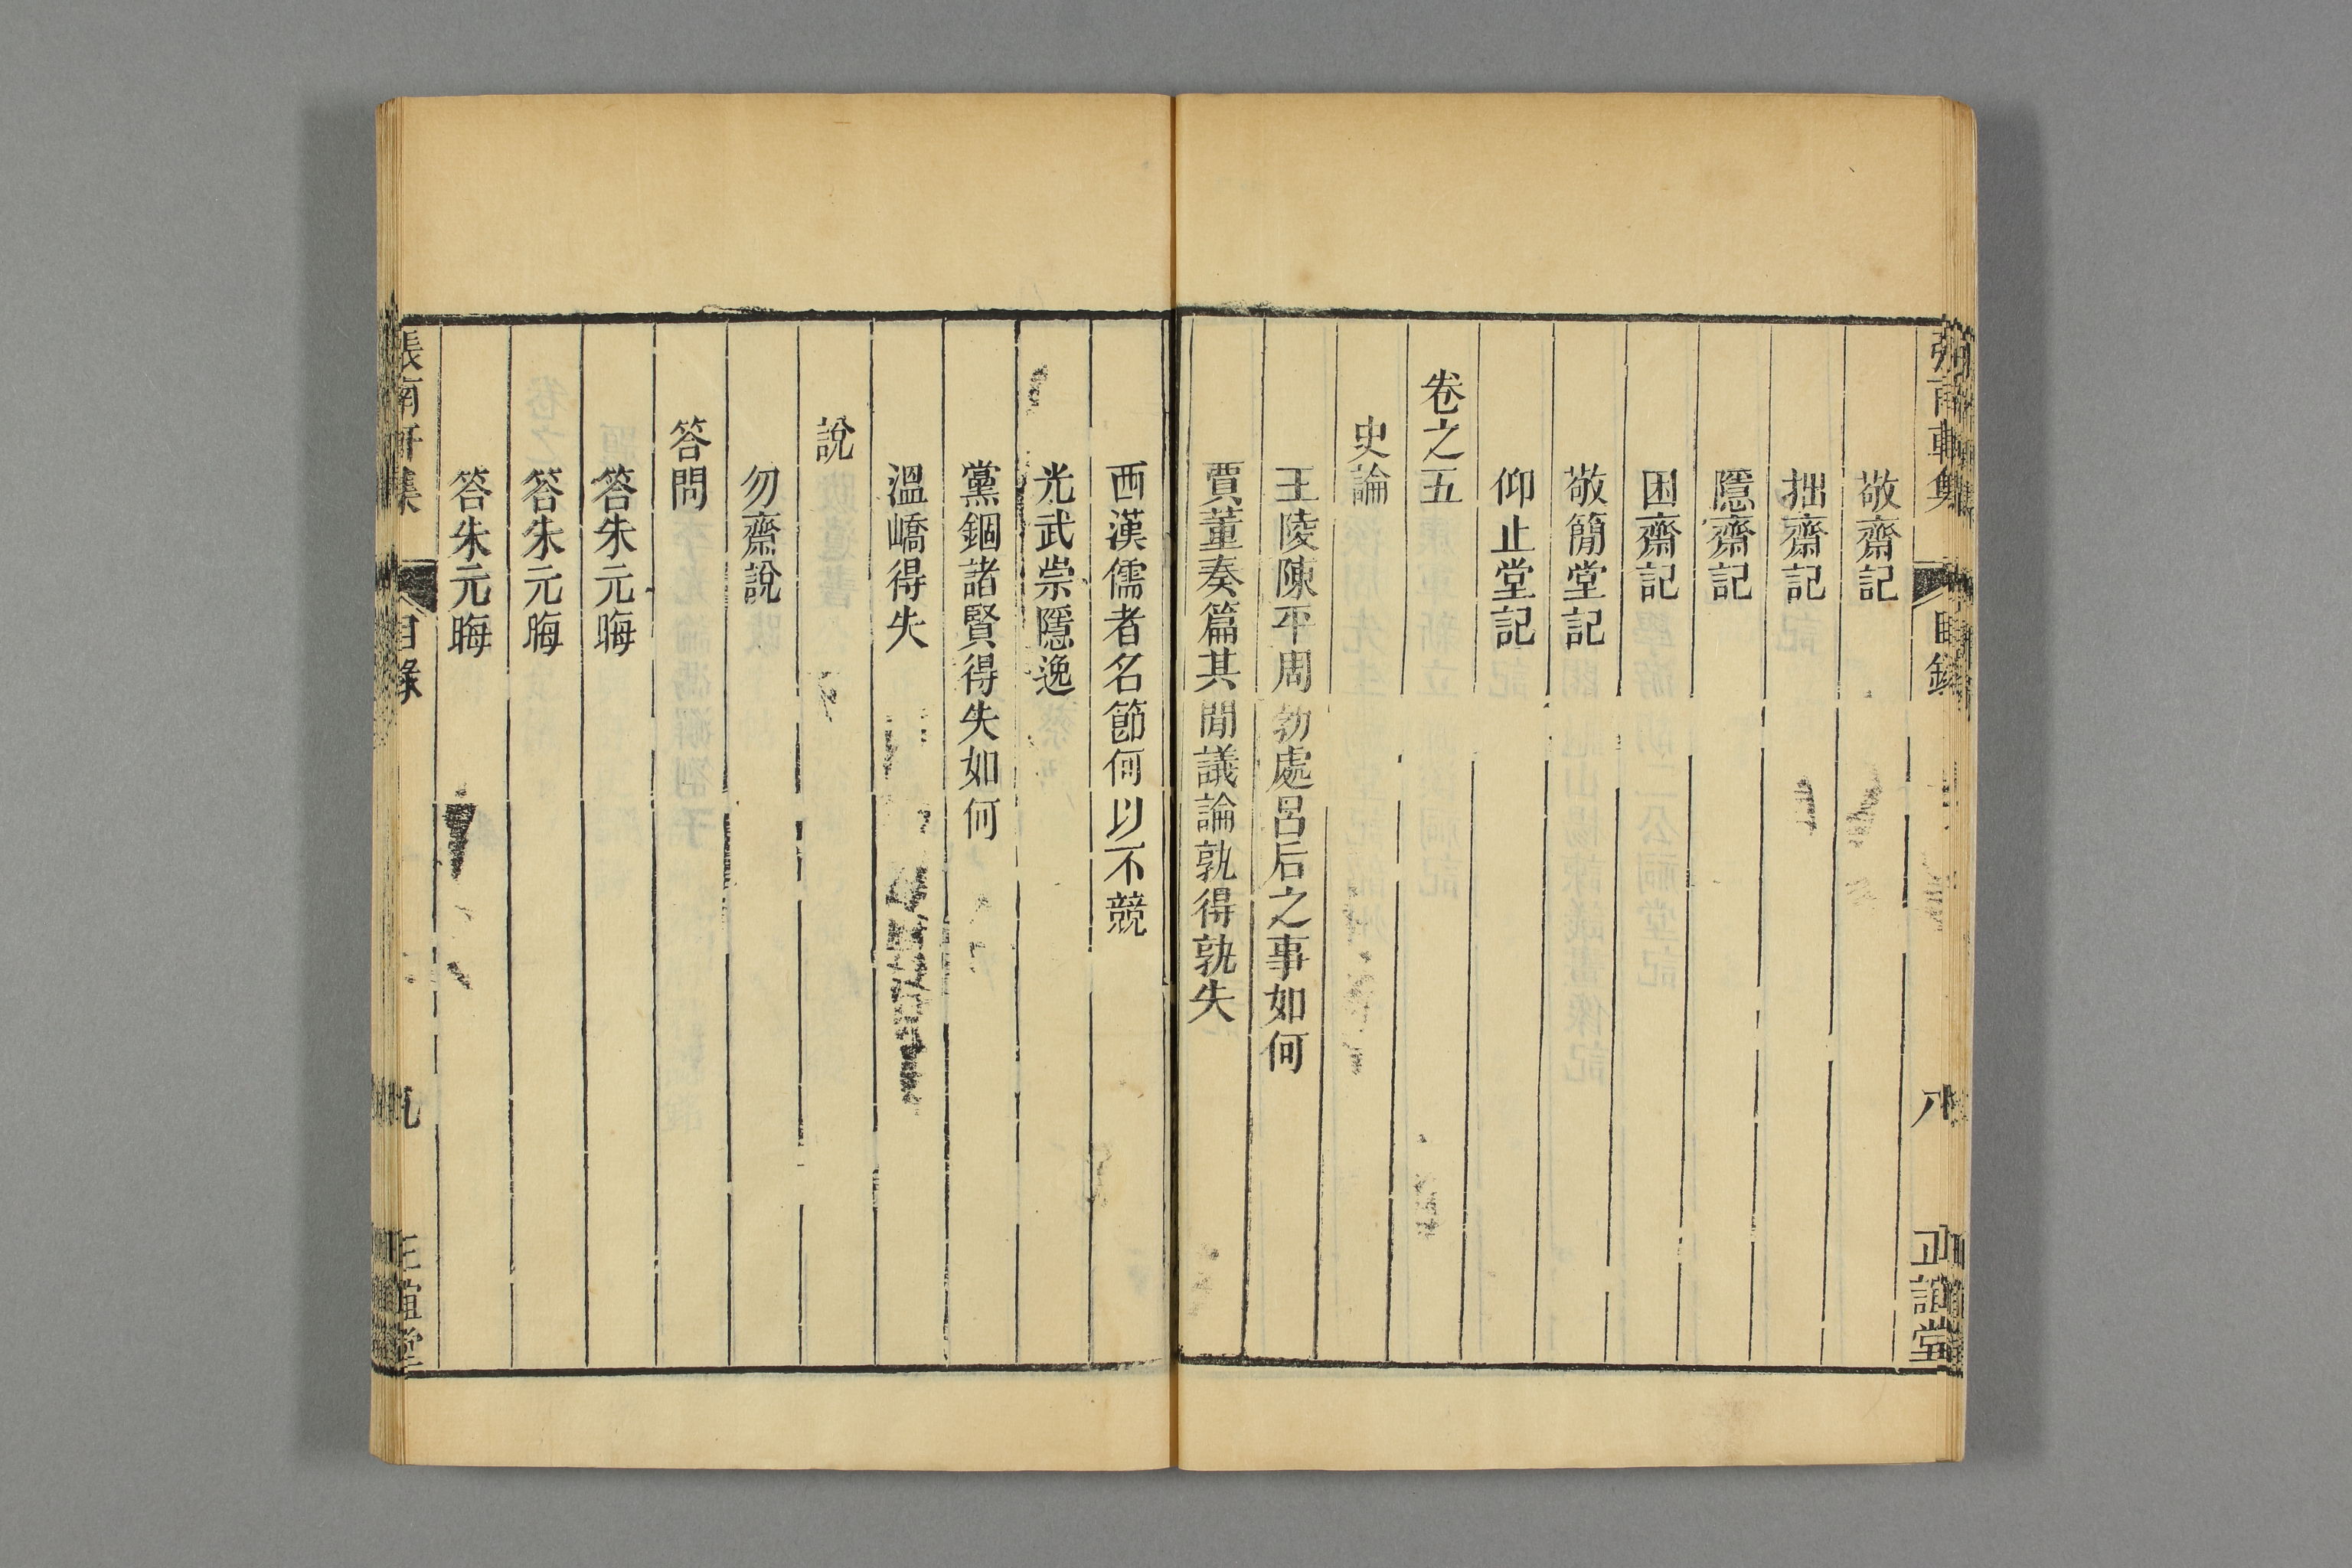 敬齋記
拙齋記
隱齋記
困齋記
敬簡堂記
仰止堂記
卷之五
史論
王陵陳平周勃處呂后之事如何
賈董奏篇其間議論孰得孰失
西漢儒者名節何以不競
光武崇隱逸
黨錮諸賢得失如何
溫嶠得失
說
勿齋說
答問
答朱元晦
答朱元晦
答朱元晦
張南軒集
目錄
九
正誼堂